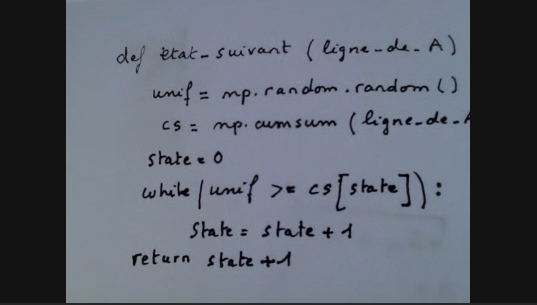 def etat-suivant (ligne-de-A)
unif = np.random.random()
cs = np.cumsum (ligne-de-A
state = 0
while (unif >= cs[state]):
state = state + 1
return state+1